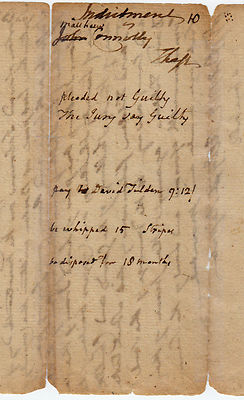 Indictment 10
Matthew
John Connolly
Theft
pleaded not Guilty
The Jury say Guilty
pay to David Tilden 9:12/
be whipped 15 Stripes
to dispose for 18 months